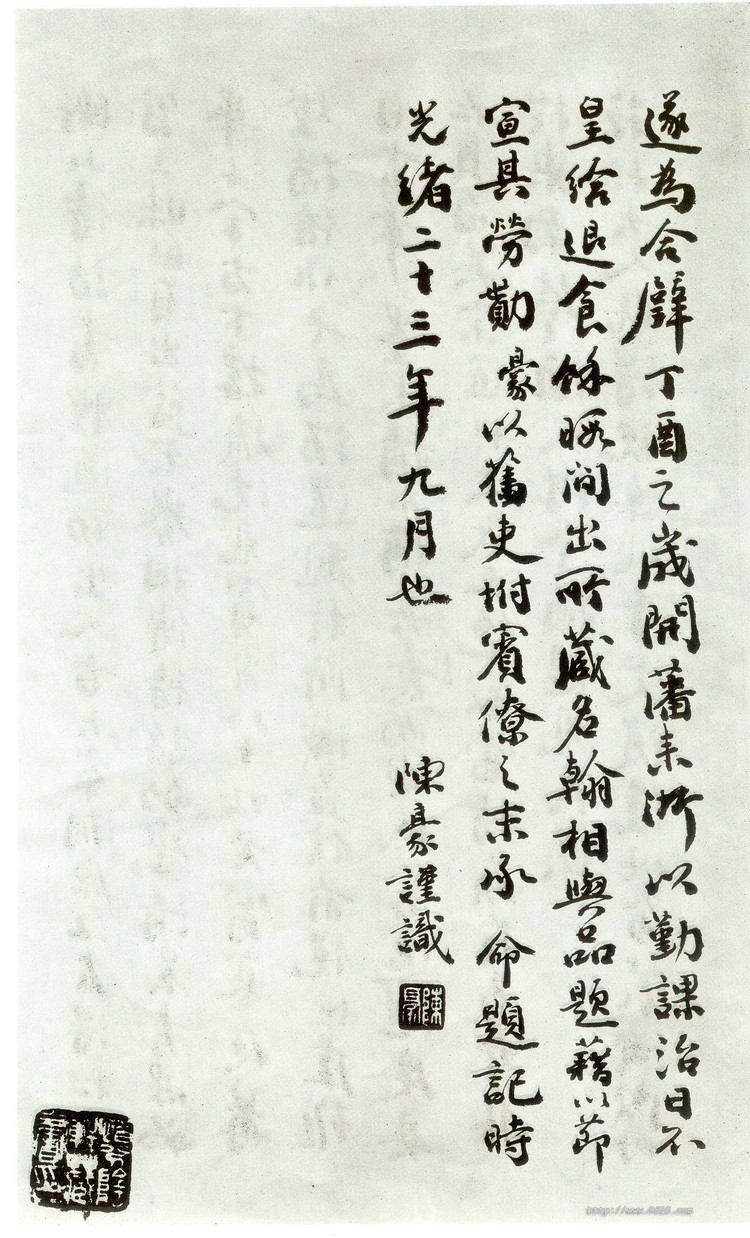 遂為合璧丁酉之歲開藩来浙以勤課治日不
皇給退食餘暇間出所藏名翰相與品題藉以節
宣其勞勩豪以舊吏坿賓僚之末承命題記時
光緒二十三年九月也
陳豪謹識
陳豪